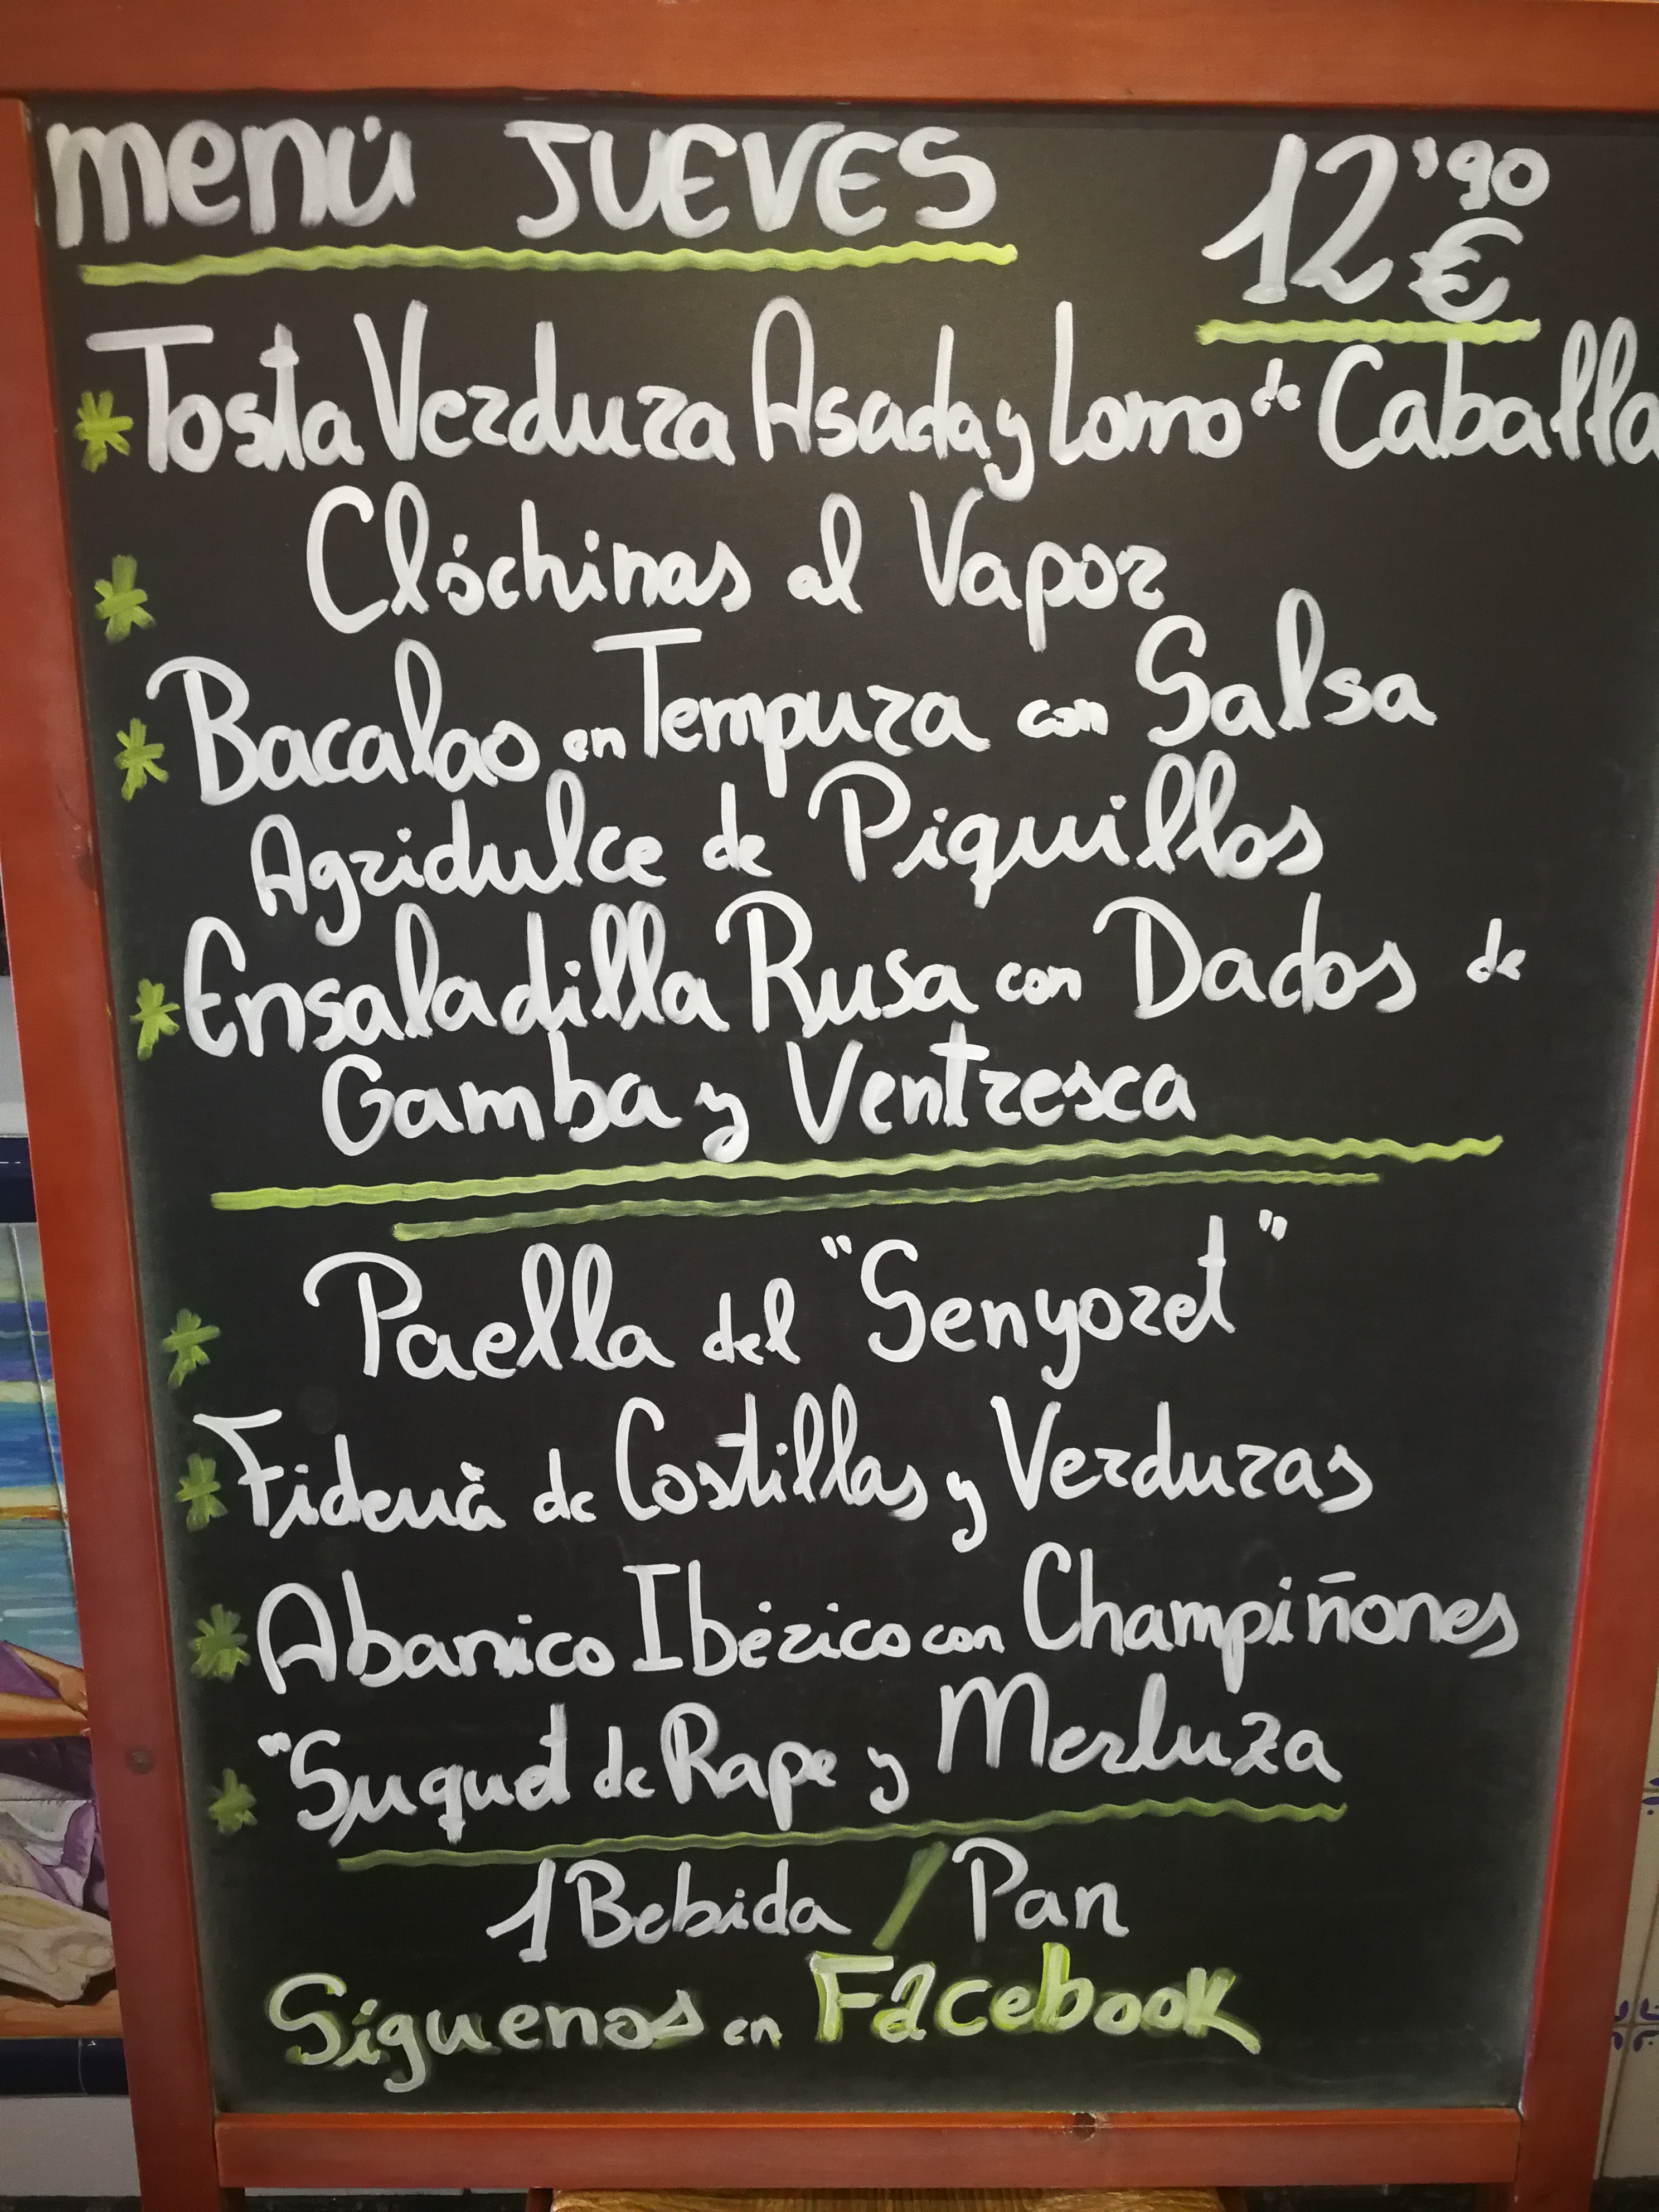 menú JUEVES 12'90 €
* Tosta Verdura Asada y Lomo de Caballa
* Clóchinas al Vapor
* Bacalao en Tempura con Salsa
Agridulce de Piquillos
* Ensaladilla Rusa con Dados de
Gamba y Ventresca
* Paella del "Senyoret"
* Fideuà de Costillas y Verduras
* Abanico Ibérico con Champiñones
* "Suquet de Rape y Merluza
1 Bebida / Pan
Síguenos en Facebook